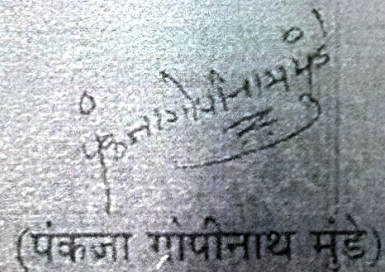 पंकजा गोपीनाथ मुंडे
(पंकजा गोपीनाथ मुंडे)